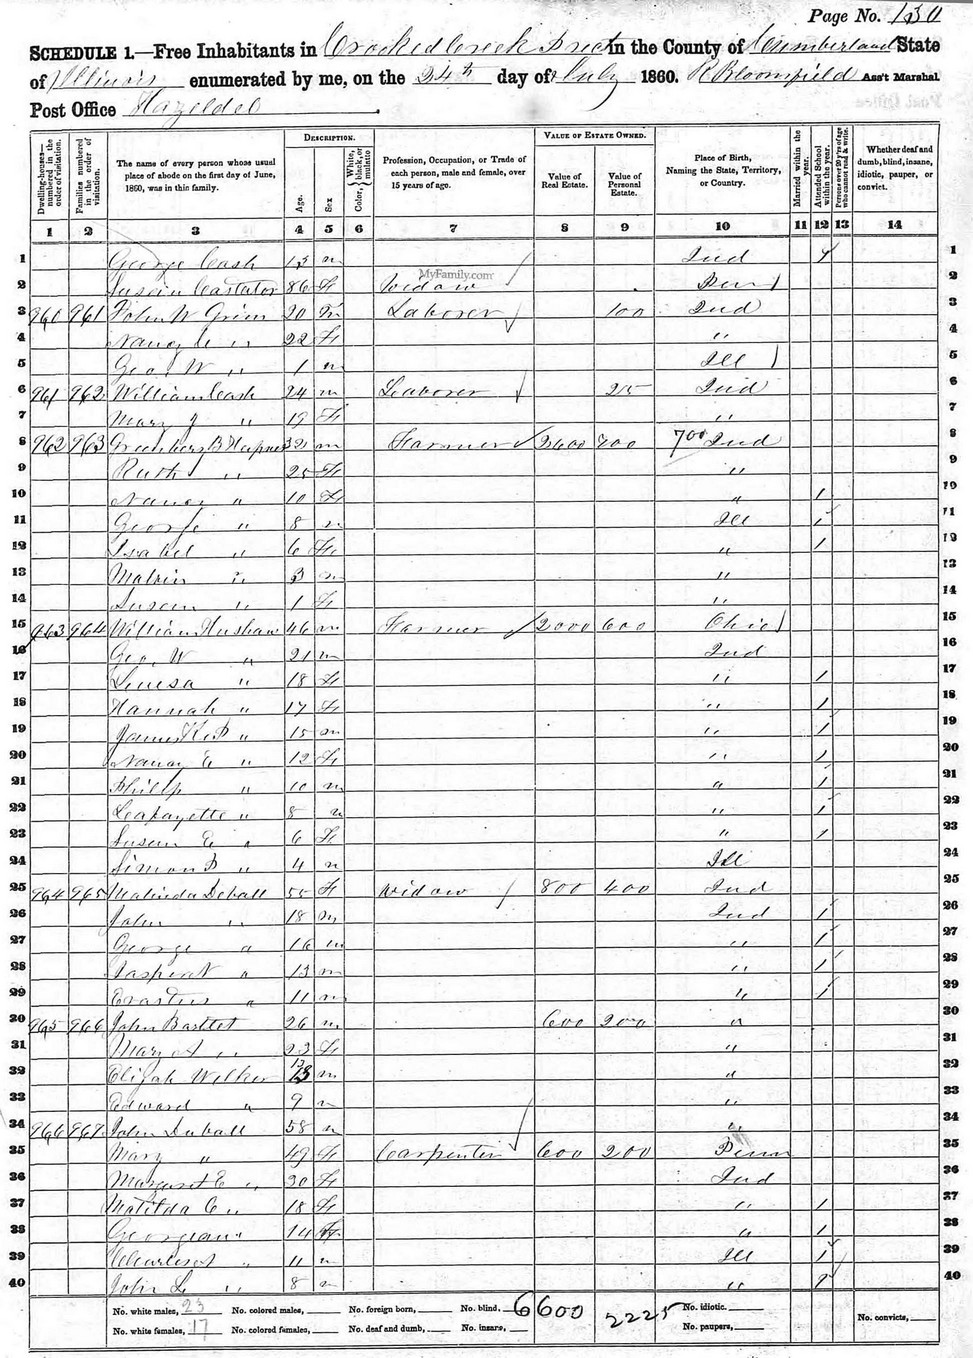 Page No. 130
SCHEDULE 1.—Free Inhabitants in Crooked Creek Prect in the County of Cumberland State
of Illinois enumerated by me, on the 24th day of July 1860. R Bloomfield Ass't Marshal
Post Office Hazeldel
Dwelling-houses—numbered in the order of visitation.
Families numbered in the order of visitation.
The name of every person whose usual place of abode on the first day of June, 1860, was in this family.
DESCRIPTION.
Age.
Sex
Color, White, black, or mulatto
Profession, Occupation, or Trade of each person, male and female, over 15 years of age.
VALUE OF ESTATE OWNED.
Value of Real Estate.
Value of Personal Estate.
Place of Birth, Naming the State, Territory, or Country.
Married within the year.
Attended School within the year.
Persons over 20 y'rs of age who cannot read & write.
Whether deaf and dumb, blind, insane, idiotic, pauper, or convict.
1 2 3 4 5 6 7 8 9 10 11 12 13 14
1 George Cash 13 m Ind 1
MyFamily.com
2 Castator 86 f Widow 2
3 960 961 John W Grim 20 m Laborer 100 Ind 3
4 Nancy " 22 f " 4
5 Geo W " 1 m Ill 5
6 961 962 William Cash 24 m Laborer 25 Ind 6
7 Mary J " 19 f " 7
8 962 963 Greenberg B 32 m Farmer 2600 700 700 Ind 8
9 Ruth " 25 f " 9
10 Nancy " 10 f " 1 10
11 George " 8 m Ill 1 11
12 Isabel " 6 f " 1 12
13 Malvin " 3 m " 13
14 Susan " 1 f " 14
15 963 964 William 46 m Farmer 2000 600 Ohio 15
16 Geo W " 21 m Ind 16
17 " 18 f " 1 17
18 Hannah " 17 f " 1 18
19 James K P " 15 m " 1 19
20 Nancy E " 12 f " 1 20
21 Philip " 10 m " 1 21
22 Lafayette " 8 m " 1 22
23 Susan E " 6 f " 1 23
24 Simon P " 4 m Ill 24
25 964 965 Malinda 55 f Widow 800 400 Ind 25
26 John " 18 m Ind 1 26
27 George " 16 m " 1 27
28 " 13 m " 1 28
29 Erastus " 11 m " 1 29
30 965 966 John Bartlet 26 m 600 200 " 30
31 Mary A " 23 f " 31
32 Elijah Welker 13 m " 32
33 Edward " 9 m " 33
34 966 967 John 58 m " 34
35 Mary " 49 f Carpenter 600 200 Penn 35
36 Margaret E " 20 f Ind 36
37 Matilda C " 18 f " 1 37
38 Georgean " 14 f " 1 38
39 " 11 m Ill 1 39
40 John L " 8 m " 40
No. white males, 23 No. colored males, No. foreign born, No. blind, 6600 2225 No. idiotic.
No. white females, 17 No. colored females, No. deaf and dumb, No. insane, No. paupers, No. convicts,